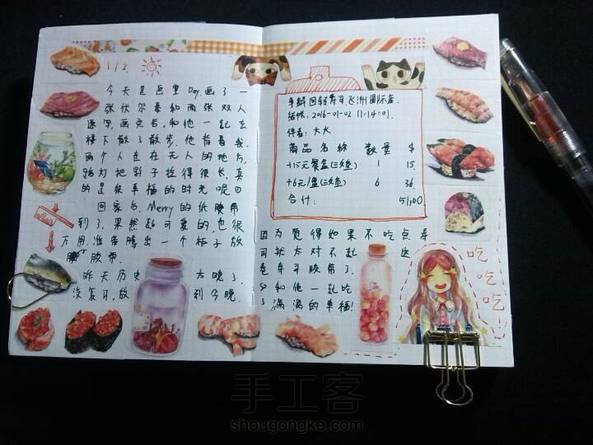 1/2
今天是画里Day.画了一
张
和两张双人
和他一起去
楼下散了散步,他背着我,
两个人走在无人的地方,
路灯把影子拉得很长,真
的是很幸福的时光呢
回家后Merry的纸胶带
到了,果然超可爱的,也很
万用.准备腾出一个柜子放
胶带.
昨天历史
太晚了.
没复习,放
到今晚.
结帐:2016-01-02 11:14:01.
作者:大大
商品名称 数量 $
+15元餐盘(三文鱼) 1 15.
+6元/盘(三文鱼) 6 36.
合计: 51.00
因为觉得如果不吃点寿
司就太对不起
这
卷寿司胶带了.
so和他一起吃
了满满的幸福!
吃
吃
吃
手工客
shougongke.com